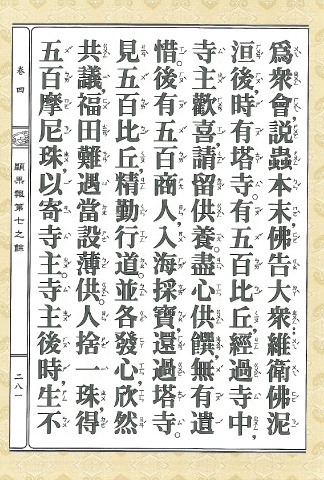 爲衆會，説蟲本末，佛告大衆：維衛佛泥
洹後，時有塔寺。有五百比丘，經過寺中，
寺主歡喜，請留供養。盡心供饌，無有遺
惜。後有五百商人，入海採寶，還過塔寺。
見五百比丘，精勤行道，並各發心，欣然
共議，福田難遇，當設薄供。人捨一珠，得
五百摩尼珠，以寄寺主。寺主後時，生不
卷四
顯果報第七之餘
二八一